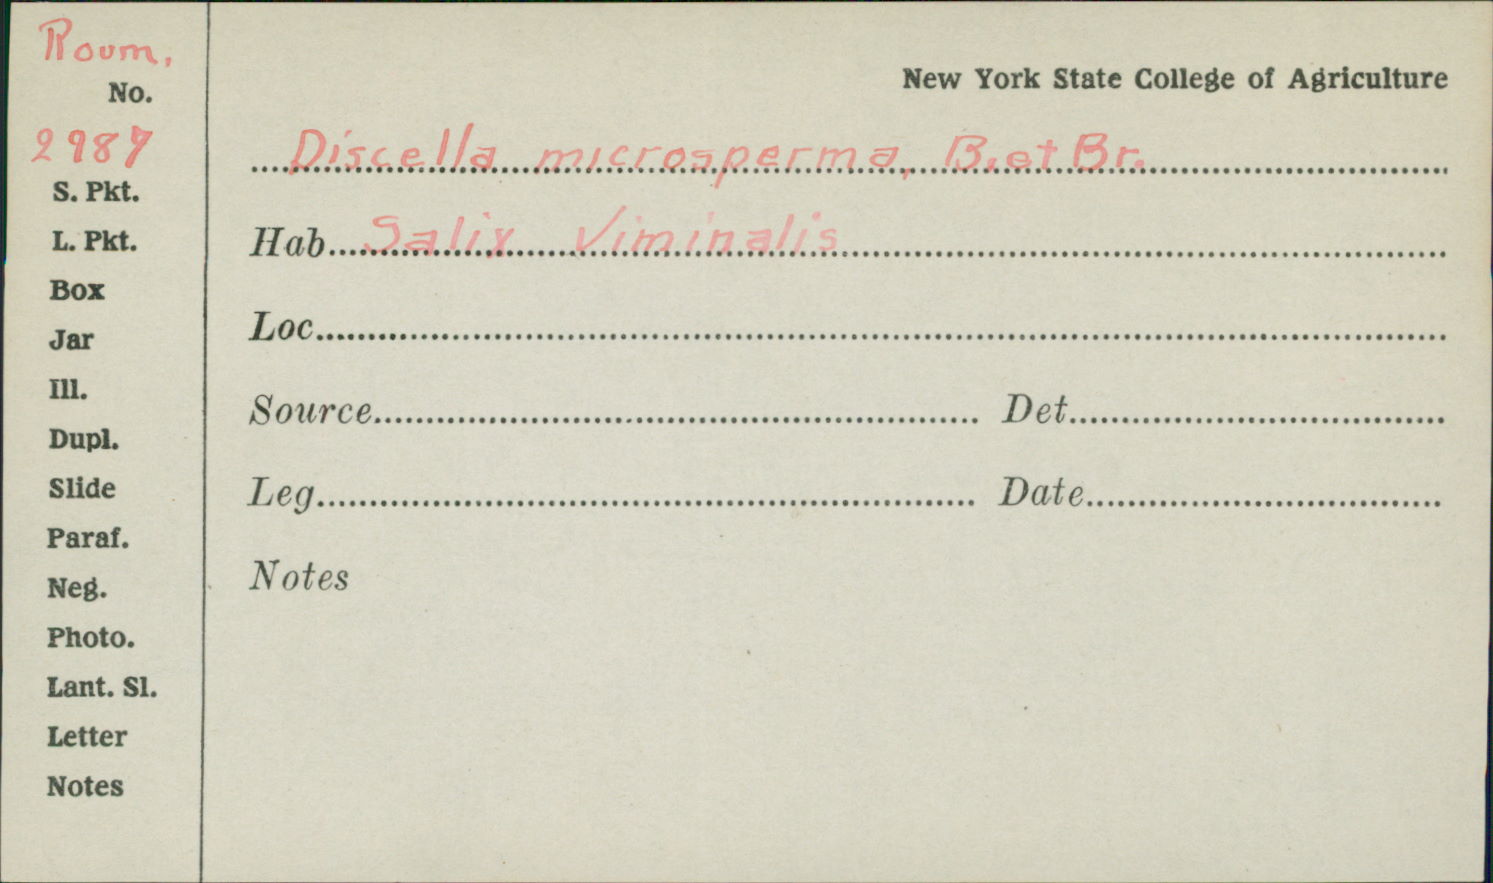 Roum.
No.
2987
S. Pkt.
L. Pkt.
Box
Jar
Ill.
Dupl.
Slide
Paraf.
Neg.
Photo.
Lant. Sl.
Letter
Notes
New York State College of Agriculture
Discella microsperma, B. et Br.
Hab Salix Viminalis
Loc
Source Det
Leg Date
Notes